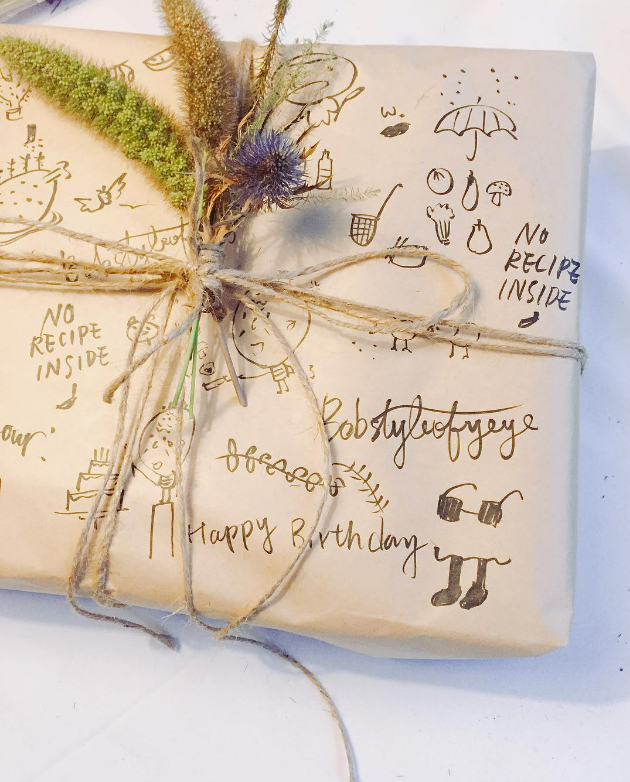 NO
RECIPE
INSIDE
NO
RECIPE
INSIDE
Bobstyleofyeye
Happy Birthday